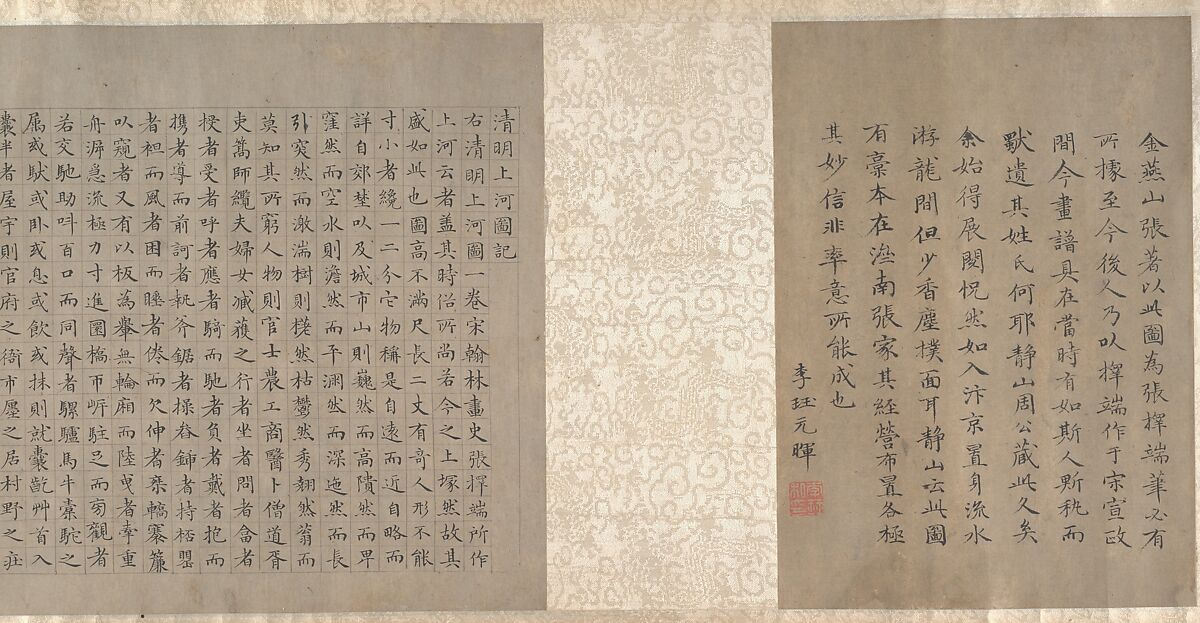 金燕山張著以此圖為張擇端筆必有
所據至今後人乃以擇端作于宋宣政
間今畫譜具在當時有如斯人斯執而
獸遺其姓氏何耶靜山周公藏此久矣
余始得展閱怳然如入汴京置身流水
游龍間但少香塵撲面耳靜山云此圖
有稾本在滥南張家其經營布置各極
其妙信非率意所能成也
李珏元暉
清明上河圖記
右清明上河圖一卷宋翰林畫史張擇端所作
上河云者蓋其時俗所尚若今之上塚然故其
盛如此也圖高不滿尺長二丈有奇人形不能
寸小者纔一二分它物稱是自遠而近自略而
詳自郊埜以及城市山則巍然而高隤然而卑
窪然而空水則澹然而平淵然而深迤然而長
引突然而激湍樹則槎然枯鬱然秀翹然蓊而
莫知其所窮人物則官士農工商醫卜僧道胥
吏篙師纜夫婦女臧獲之行者坐者問者畣者
授者受者呼者應者騎而馳者負者戴者抱而
携者導而前訶者執斧鋸者操畚鍤者持桮罌
者袒而風者困而睡者倦而欠伸者乘轎褰簾
以窺者又有以板為轝無輪廂而陸曳者牽重
舟泝急流極力寸進圜橋帀岸駐足而旁觀者
若交馳助叫百口而同聲者騾驢馬牛橐駝之
屬或馱或臥或息或飲或秣則就囊齕艸首入
囊半者屋宇則官府之衙市廛之居村野之庄